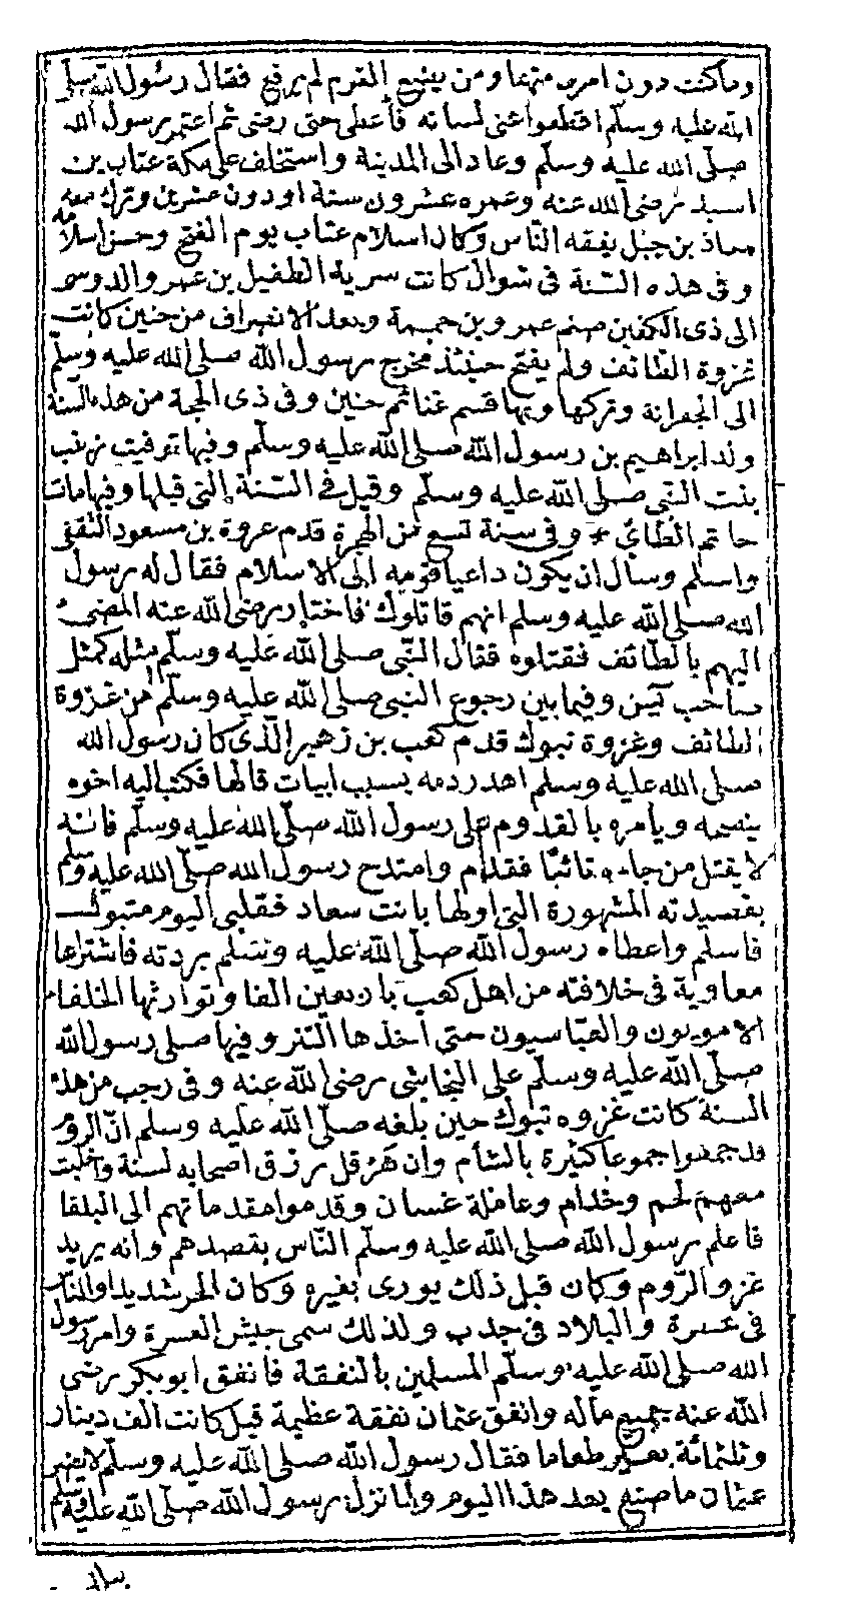 وماكنت دون امرء منهما ومن يضع اليوم لم يرفع فقال رسول الله صلى
الله عليه وسلم اقطعوا عنى لسانه فأعطى حتى رضى ثم اعتمر رسول الله
صلى الله عليه وسلم وعاد الى المدينة واستخلف على مكة عتاب بن
اسيد رضى الله عنه وعمره عشرون سنة او دون عشرين وترك معه
معاذ بن جبل يفقه النّاس وكان اسلام عتاب يوم الفتح وحسن اسلامه
وفى هذه السّنة فى شوال كانت سرية الطفيل بن عمرو الدوسى
الى ذى الكفين صنم عمرو بن حممة وبعد الانصراف من حنين كانت
غزوة الطائف ولم يفتح حينئذ فخرج رسول الله صلى الله عليه وسلّم
الى الجعرانة وتركها وبها قسم غنائم حنين وفى ذى الحجة من هذه السنة
ولد ابراهيم بن رسول الله صلى الله عليه وسلم وفيها توفيت زينب
بنت النّبي صلى الله عليه وسلم وقيل في السّنة التى قبلها وفيها مات
حاتم الطّائى * وفى سنة تسع من الهجرة قدم عروة بن مسعود الثقفى
واسلم وسأل ان يكون داعيا قومه الى الاسلام فقال له رسول
الله صلى الله عليه وسلم انهم قاتلوك فاختار رضى الله عنه المضى
اليهم بالطّائف فقتلوه فقال النّبى صلى الله عليه وسلم مثله كمثل
صاحب يس وفيما بين رجوع النبى صلى الله عليه وسلّم من غزوة
الطائف وغزوة تبوك قدم كعب بن زهير الّذى كان رسول الله
صلى الله عليه وسلم اهدر دمه بسبب ابيات قالها فكتب اليه اخوه
ينصحه ويأمره بالقدوم على رسول الله صلّى الله عليه وسلّم فانه
لا يقتل من جاءه تائبًا فقدم وامتدح رسول الله صلّى الله عليه وسلم
بقصيدته المشهورة التى اولها بانت سعاد فقلبى اليوم متبول
فاسلم واعطاه رسول الله صلّى الله عليه وسلم بردته فاشتراها
معاوية فى خلافته من اهل كعب باربعين الفا وتوارثها الخلفاء
الامويون والعبّاسيون حتى اخذها التتر وفيها صلى رسول الله
صلّى الله عليه وسلّم على النجاشى رضى الله عنه وفى رجب من هذه
السنة كانت غزوه تبوك حين بلغه صلّى الله عليه وسلم انّ الروم
قد جمعوا جموعا كثيرة بالشأم وان هرقل رزق اصحابه لسنة واجلبت
معهم لخم وجذام وعاملة غسان وقدموا مقدماتهم الى البلقا
فاعلم رسول الله صلى الله عليه وسلّم النّاس بقصدهم وانه يريد
غزو الرّوم وكان قبل ذلك يورى بغيره وكان الحر شديدا والنّاس
فى عسرة والبلاد فى جدب ولذلك سمى جيش العسرة وامر رسول
الله صلى الله عليه وسلّم المسلمين بالنفقة فانفق ابو بكر رضى
الله عنه جميع ماله وانفق عثمان نفقة عظيمة قيل كانت الف دينار
وثلثمائة بعير طعاما فقال رسول الله صلى الله عليه وسلّم لا يضر
عثمان ما صنع بعد هذا اليوم ولما نزل رسول الله صلى الله عليه وسلم